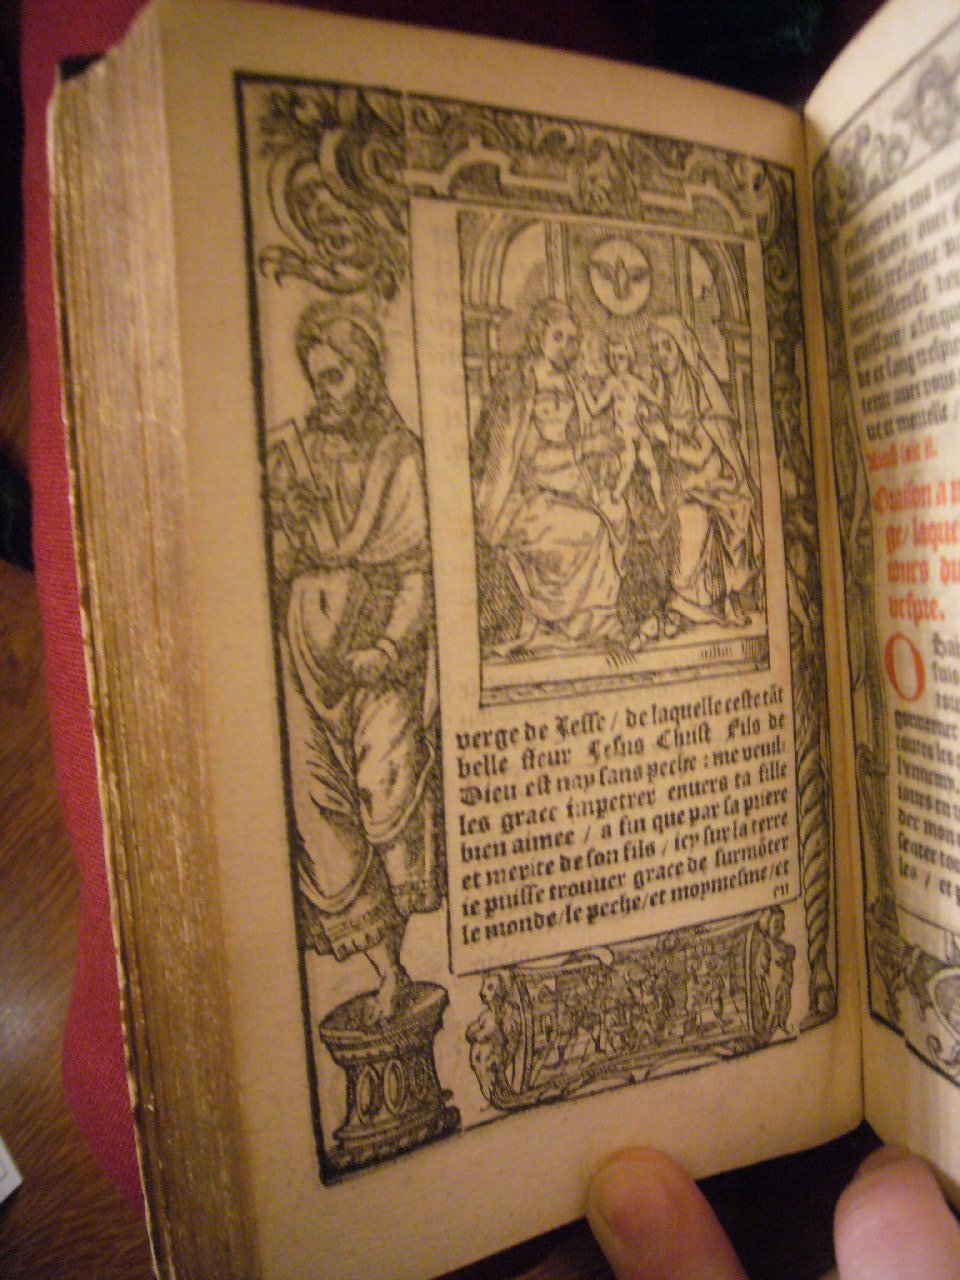 verge de Jesse / de laquelle ceste tāt
belle fleur Jesus Christ Fils de
Dieu est nay sans peche : me veuil:
les grace impetrer enuers ta fille
bien aimee / a fin que par sa priere
et merite de son fils / icy sur la terre
ie puisse trouuer grace de surmōter
le monde/le peche/et moymesme/et
en
puissant/ a fin qu
de et sang
tenir auec vous
ue et mezelle /
Ainsi soit il.
Oraison a
ge/ laque
iours du
vespre.
O
gouuerneur
toutes les
l'ennemy.
iours en
der mon
les / et p